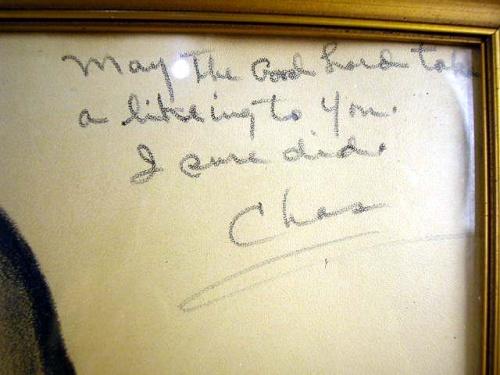 May The Good Lord take
a likeing to You.
I sure did.
Chas